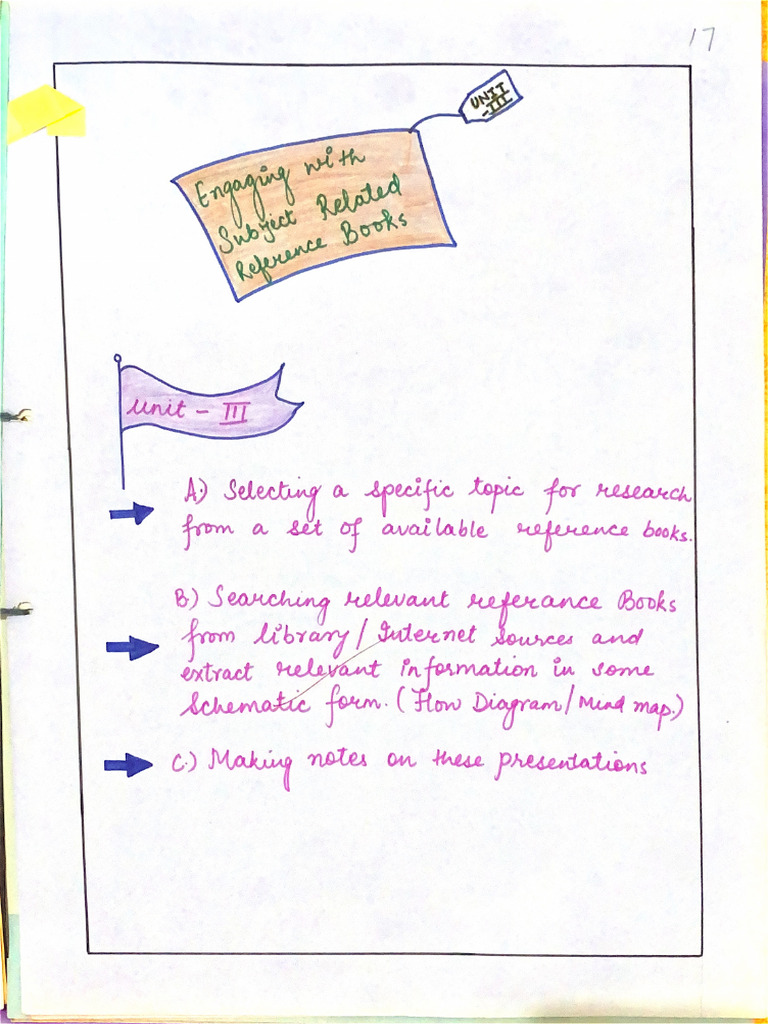 17
UNIT
-III
Engaging with
Subject Related
Reference Books
Unit - III
A.) Selecting a specific topic for research
from a set of available reference books.
B.) Searching relevant referance Books
from library/Internet sources and
extract relevant information in some
Schematic form. (Flow Diagram/Mind map.)
C.) Making notes on these presentations